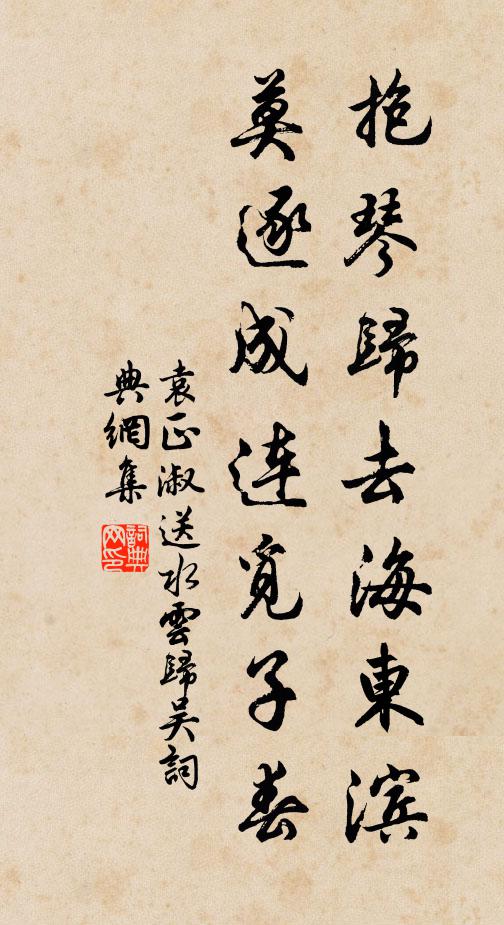 抱琴歸去海東滨
莫逐成连覓子春
袁正淑送水雲歸吴詞
典網集
詞典网印